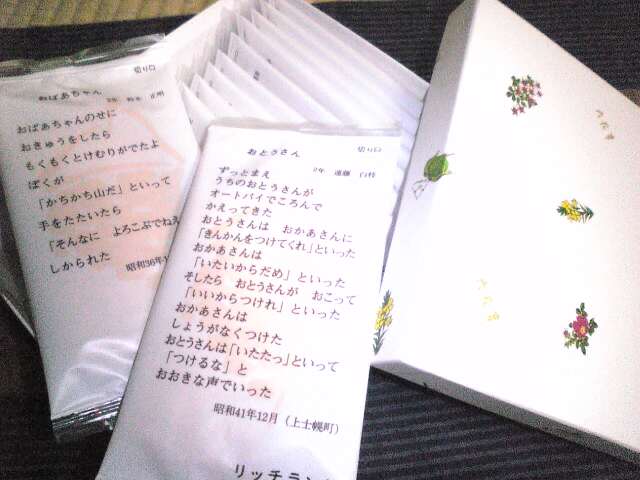 切り口
おばあちゃん
2年
おばあちゃんのせに
おきゅうをしたら
もくもくとけむりがでたよ
ぼくが
「かちかち山だ」といって
手をたたいたら
「そんなに よろこぶでねえ
しかられた
昭和36年1
切り口
おとうさん
2年 遠藤
ずっとまえ
うちのおとうさんが
オートバイでころんで
かえってきた
おとうさんは おかあさんに
「きんかんをつけてくれ」といった
おかあさんは
「いたいからだめ」といった
そしたら おとうさんが おこって
「いいからつけれ」といった
おかあさんは
しょうがなくつけた
おとうさんは「いたたっ」といって
「つけるな」と
おおきな声でいった
昭和41年12月(上士幌町)
リッチラン